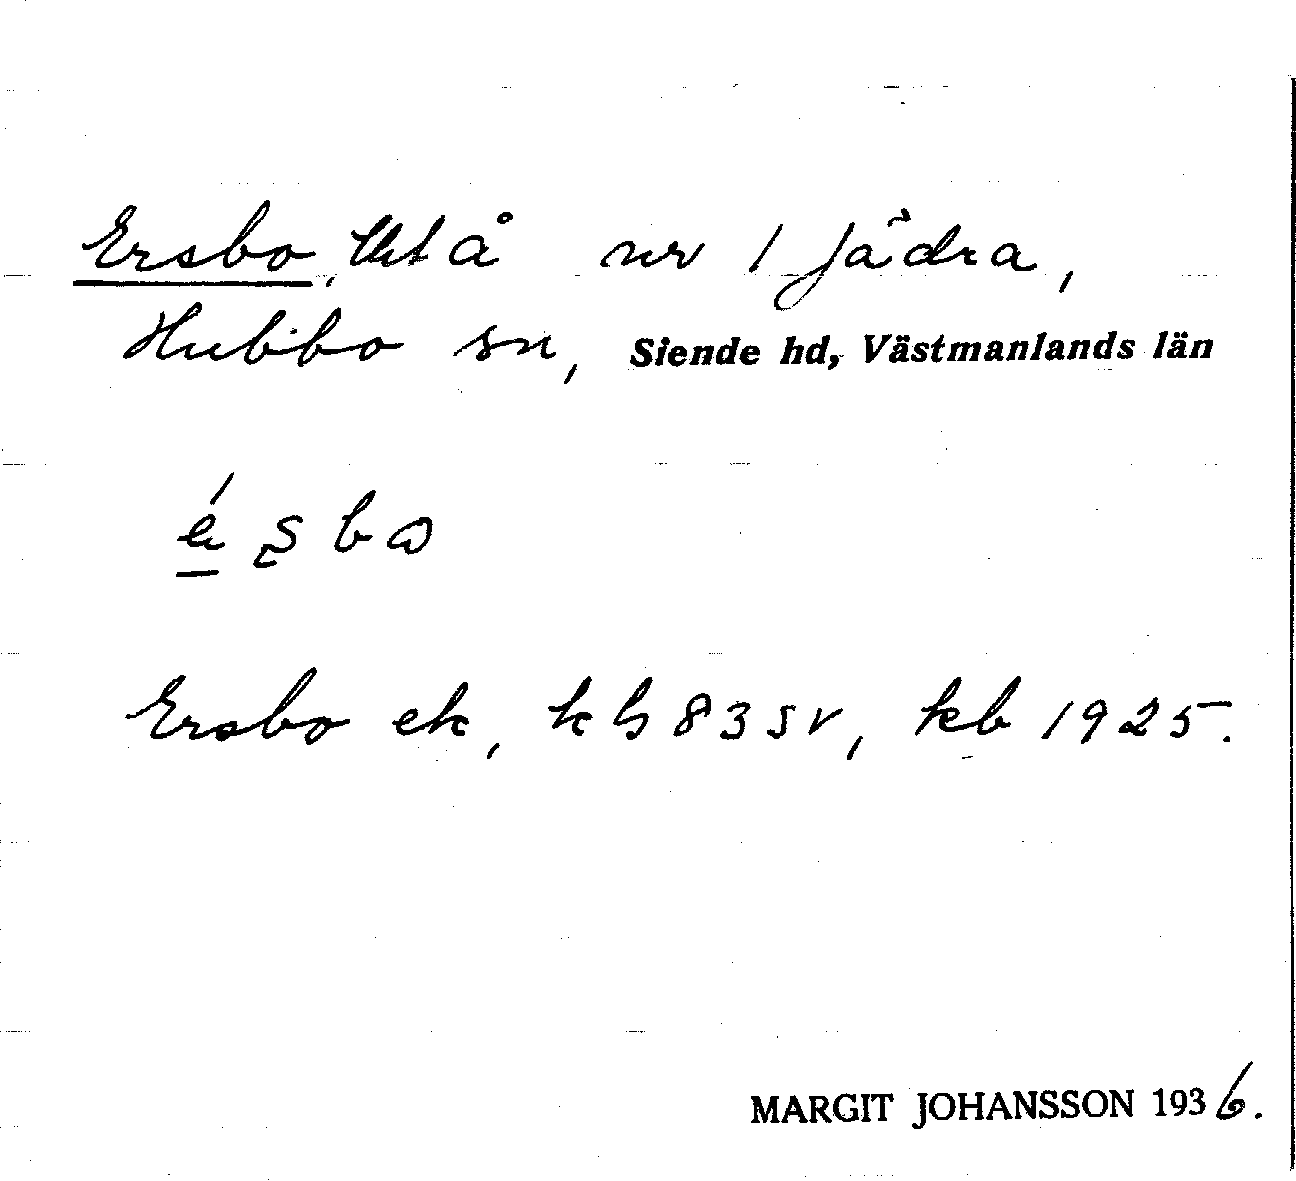 Ersbo, lht å nr 1 Jädra,
Hubbo sn, Siende hd, Västmanlands län
é ʂ b ω
Ersbo ek, kb 83 SV, kb 1925.
MARGIT JOHANSSON 1936.